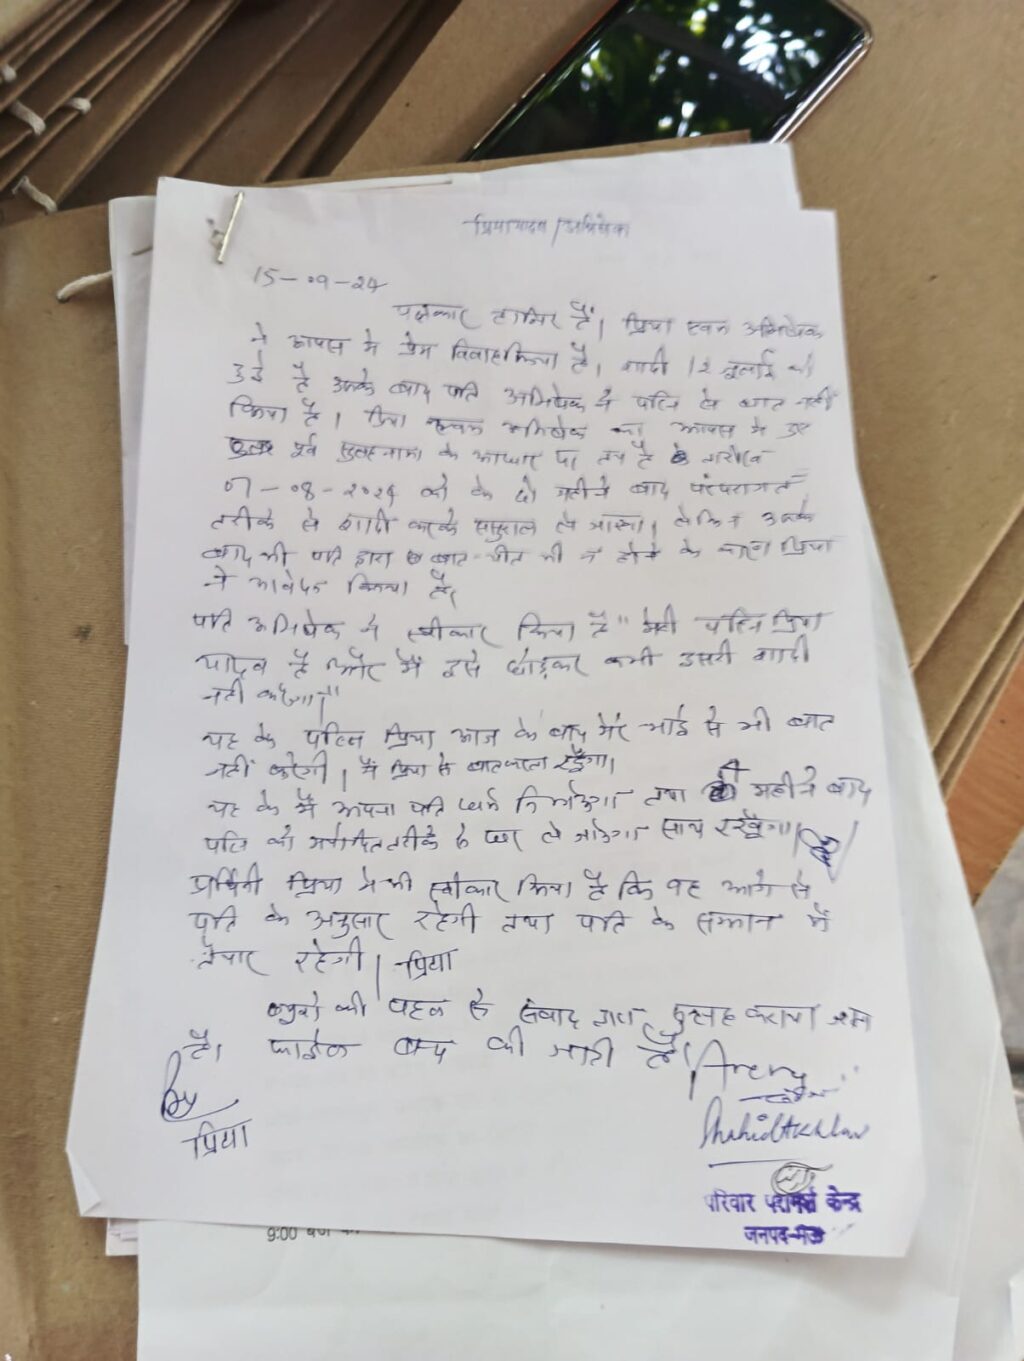 प्रिया यादव / अभिषेक
15-09-24
पक्षकार हाजिर हैं। प्रिया एवम अभिषेक
ने आपस मे प्रेम विवाह किया है। शादी 12 जुलाई को
हुई है उसके बाद पति अभिषेक ने पत्नि से बात नहीं
किया है। प्रिया एवम अभिषेक का आपस मे हुए
पूर्व सुलहनामा के आधार पर तय है तारीख
07-08-2024 को के दो महीने बाद परंपरागत
तरीके से शादी करके ससुराल ले जाएगा। लेकिन उसके
बाद भी पति द्वारा बात-चीत भी न होने के कारण प्रिया
ने आवेदन किया है।
पति अभिषेक ने स्वीकार किया है "मेरी पत्नि प्रिया
यादव है और मैं इसे छोड़कर कभी दूसरी शादी
नहीं करूंगा।"
यह के पत्नि प्रिया आज के बाद मेरे भाई से भी बात
नहीं करेगी। मैं प्रिया से बात करता रहूँगा।
यह के मैं अपना पति धर्म निभाऊंगा तथा 4 महीने बाद
पत्नि को तरीके से घर ले जाऊंगा साथ रखूंगा।
प्रार्थिनी प्रिया ने भी स्वीकार किया है कि वह आगे से
पति के अनुसार रहेगी तथा पति के सम्मान में
तैयार रहेगी। प्रिया
की पहल से संवाद द्वारा सुलह कराया गया
है। फाईल बन्द की जाती है।
प्रिया
Shahid Akhtar
परिवार परामर्श केन्द्र
जनपद-मऊ
9:00